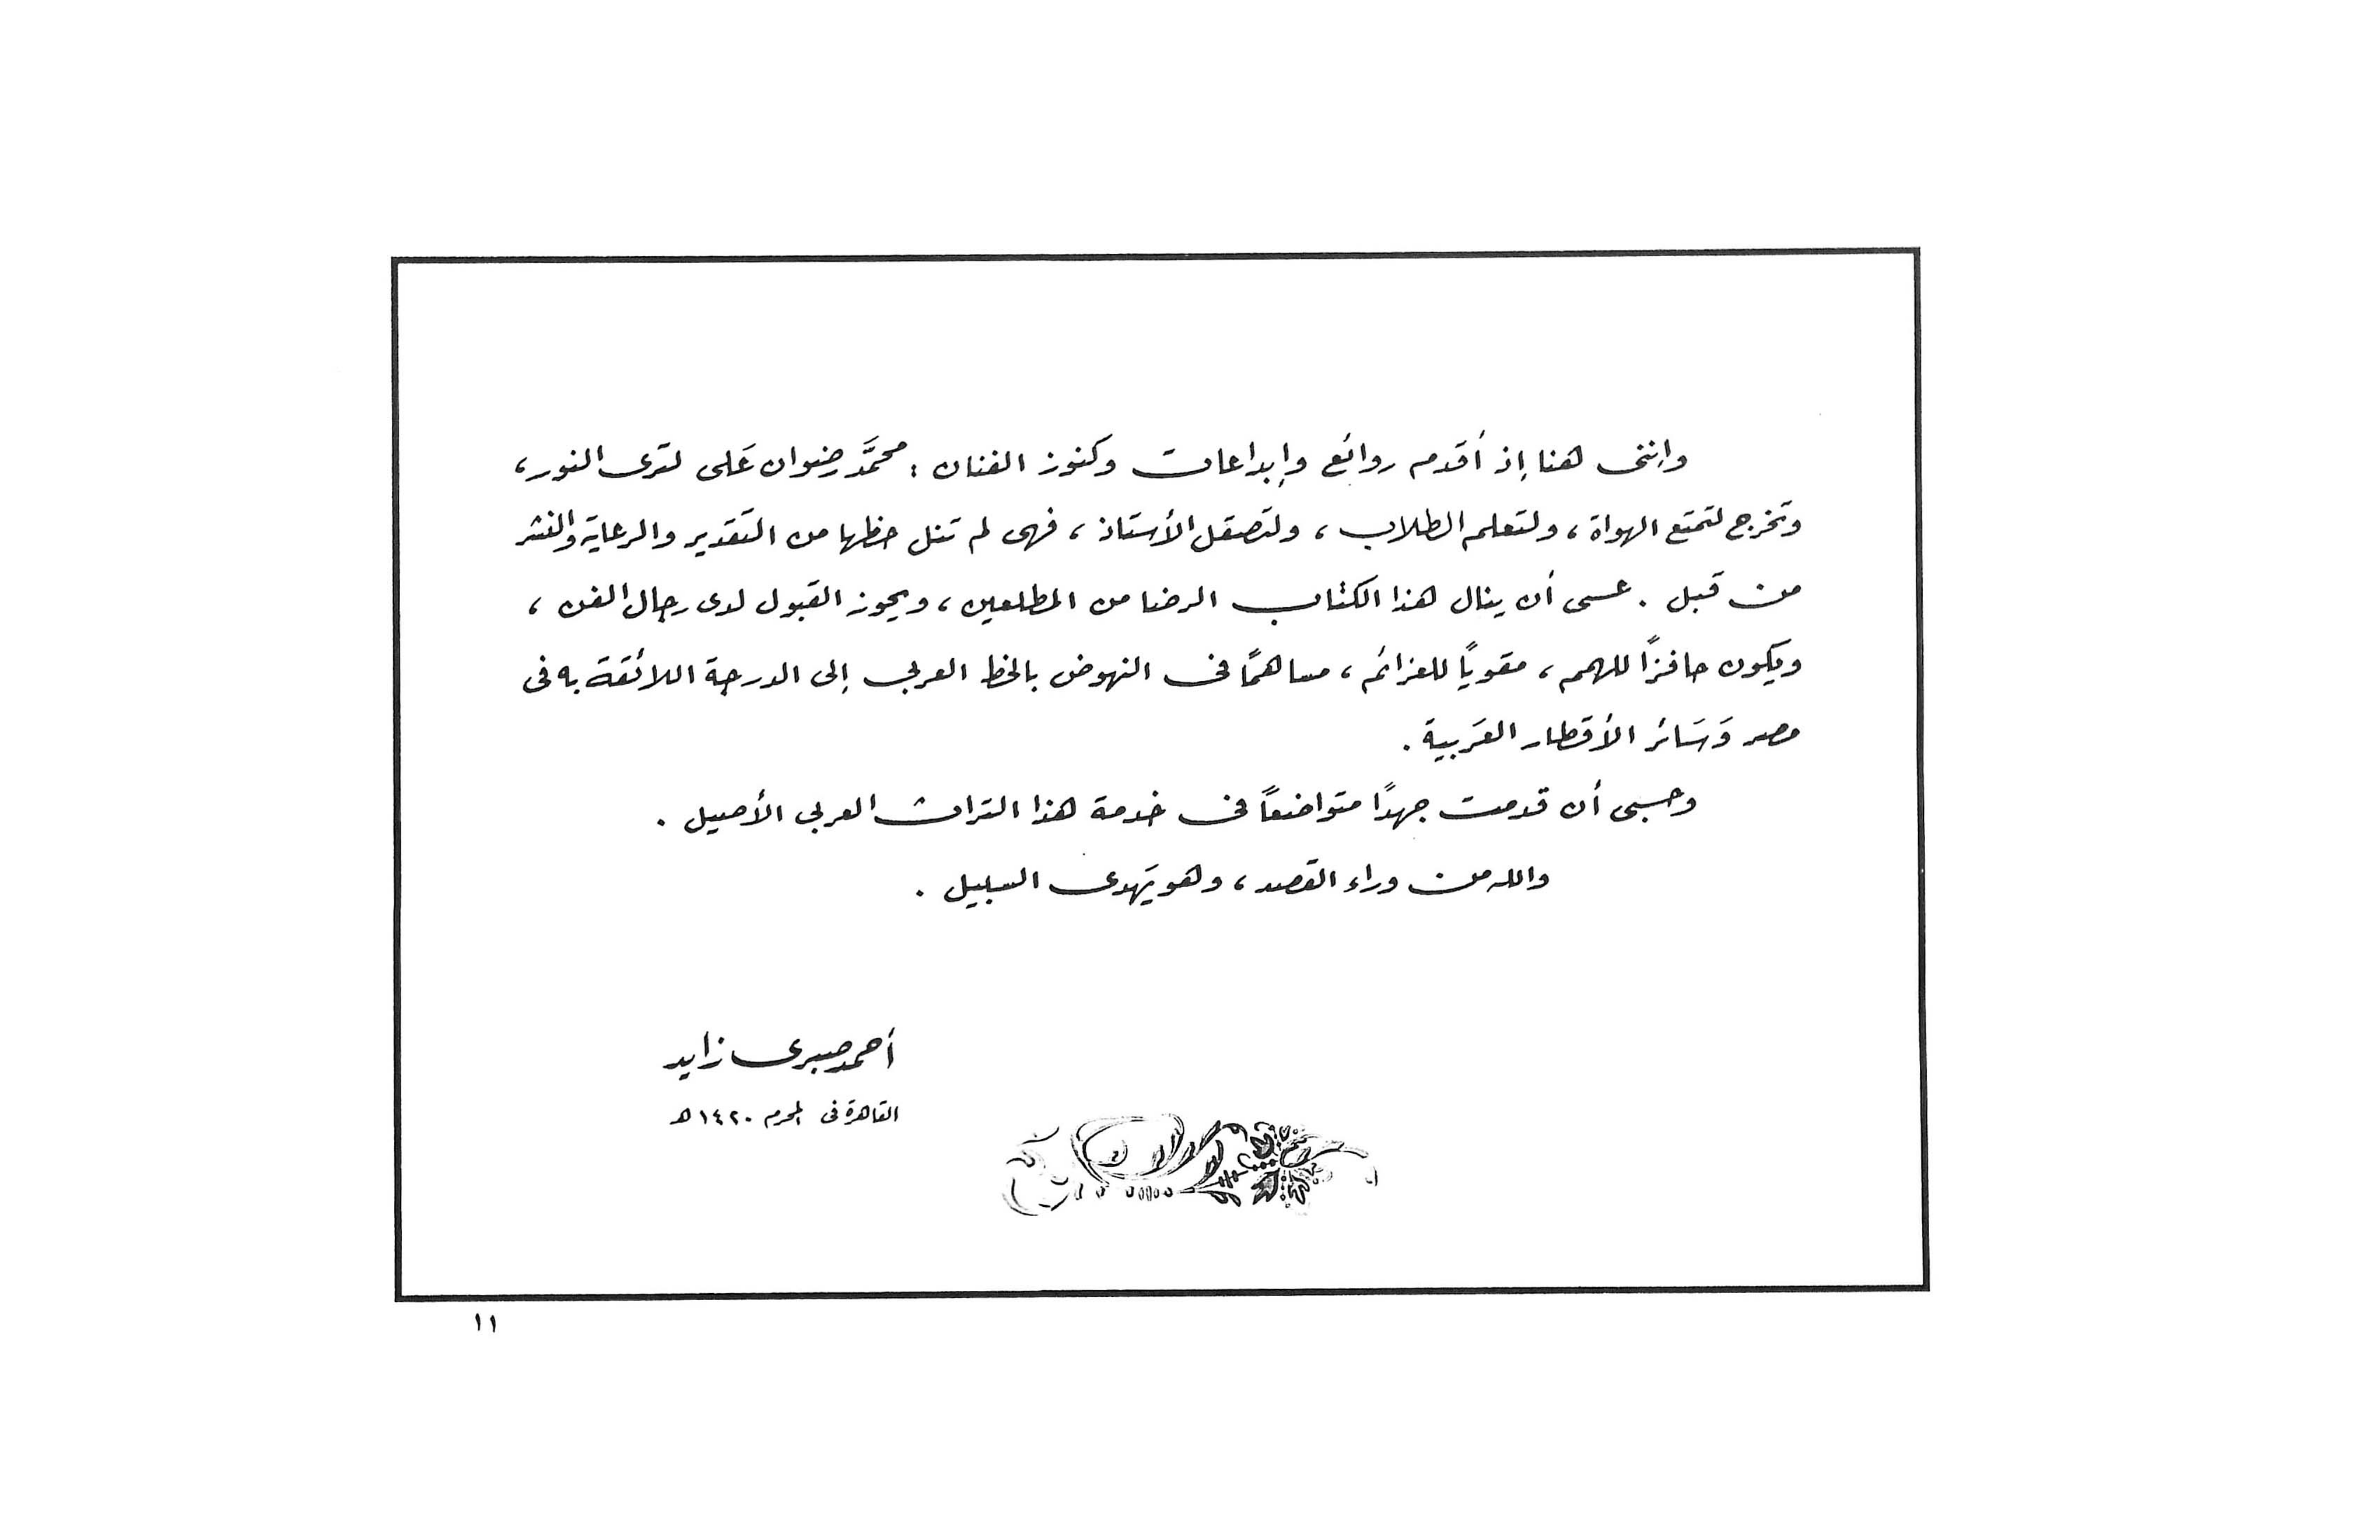 وإننى هنا إذ أقدم روائع وإبداعات وكنوز الفنان : محمَّد رضوان عَلى لترى النور ،
وتخرج لتمتع الهواة ، ولتعلم الطلاب ، ولتصقل الأستاذ ، فهى لم تنل حظها من التقدير والرعاية والنشر
من قبل . عسى أن ينال هذا الكتاب الرضا من المطلعين ، ويحوز القبول لدى رجال الفن ،
ويكون حافزًا للهمم ، مقويًا للعزائم ، مساهمًا فى النهوض بالخط العربى إلى الدرجة اللائقة به فى
مصر وَسَائر الأقطار العَربية .
وحسبى أن قدمت جهدًا متواضعًا فى خدمة هذا التراث العربى الأصيل .
والله من وراء القصد ، وهو يَهدى السبيل .
أحمد صبرى زايد
القاهرة فى المحرم ١٤٢٠ هـ
١١